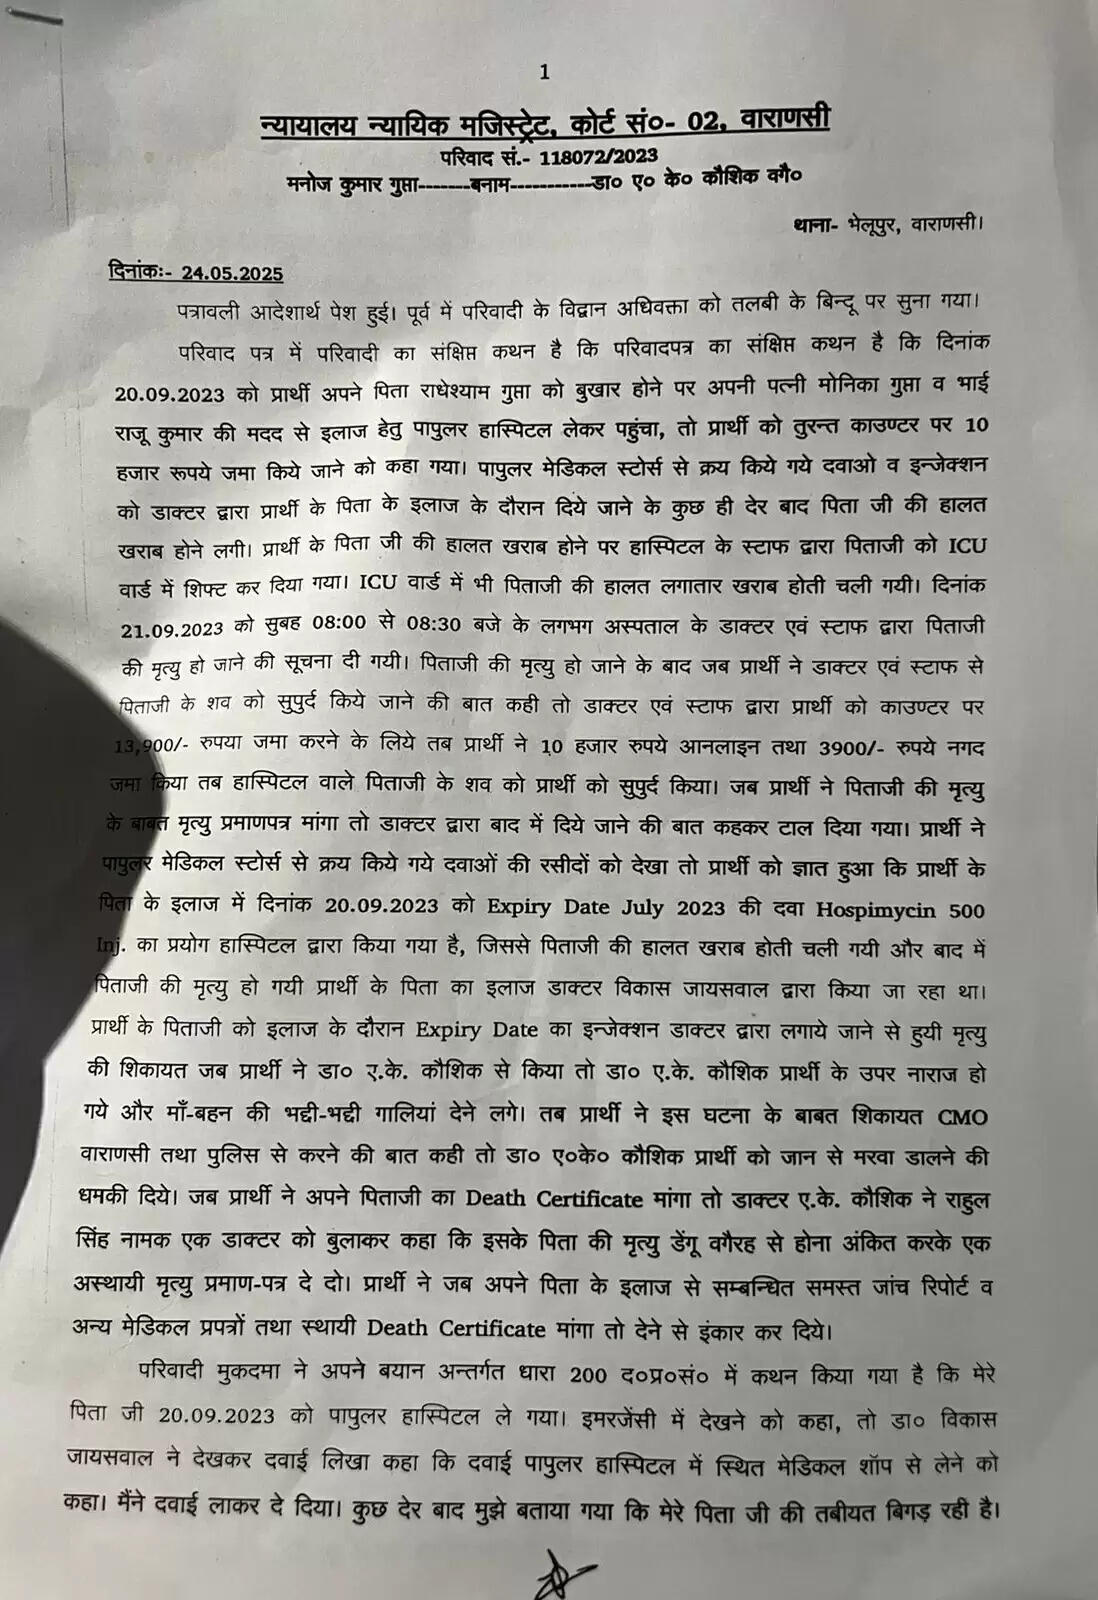 1
न्यायालय न्यायिक मजिस्ट्रेट, कोर्ट सं०- 02, वाराणसी
परिवाद सं.- 118072/2023
मनोज कुमार गुप्ता-------बनाम-----------डा० ए० के० कौशिक वगै०
थाना- भेलूपुर, वाराणसी।
दिनांकः- 24.05.2025
पत्रावली आदेशार्थ पेश हुई। पूर्व में परिवादी के विद्वान अधिवक्ता को तलबी के बिन्दू पर सुना गया।
परिवाद पत्र में परिवादी का संक्षिप्त कथन है कि परिवादपत्र का संक्षिप्त कथन है कि दिनांक
20.09.2023 को प्रार्थी अपने पिता राधेश्याम गुप्ता को बुखार होने पर अपनी पत्नी मोनिका गुप्ता व भाई
राजू कुमार की मदद से इलाज हेतु पापुलर हास्पिटल लेकर पहुंचा, तो प्रार्थी को तुरन्त काउण्टर पर 10
हजार रूपये जमा किये जाने को कहा गया। पापुलर मेडिकल स्टोर्स से क्रय किये गये दवाओ व इन्जेक्शन
को डाक्टर द्वारा प्रार्थी के पिता के इलाज के दौरान दिये जाने के कुछ ही देर बाद पिता जी की हालत
खराब होने लगी। प्रार्थी के पिता जी की हालत खराब होने पर हास्पिटल के स्टाफ द्वारा पिताजी को ICU
वार्ड में शिफ्ट कर दिया गया। ICU वार्ड में भी पिताजी की हालत लगातार खराब होती चली गयी। दिनांक
21.09.2023 को सुबह 08:00 से 08:30 बजे के लगभग अस्पताल के डाक्टर एवं स्टाफ द्वारा पिताजी
की मृत्यु हो जाने की सूचना दी गयी। पिताजी की मृत्यु हो जाने के बाद जब प्रार्थी ने डाक्टर एवं स्टाफ से
पिताजी के शव को सुपुर्द किये जाने की बात कही तो डाक्टर एवं स्टाफ द्वारा प्रार्थी को काउण्टर पर
13,900/- रुपया जमा करने के लिये तब प्रार्थी ने 10 हजार रुपये आनलाइन तथा 3900/- रुपये नगद
जमा किया तब हास्पिटल वाले पिताजी के शव को प्रार्थी को सुपुर्द किया। जब प्रार्थी ने पिताजी की मृत्यु
के बाबत मृत्यु प्रमाणपत्र मांगा तो डाक्टर द्वारा बाद में दिये जाने की बात कहकर टाल दिया गया। प्रार्थी ने
पापुलर मेडिकल स्टोर्स से क्रय किये गये दवाओं की रसीदों को देखा तो प्रार्थी को ज्ञात हुआ कि प्रार्थी के
पिता के इलाज में दिनांक 20.09.2023 को Expiry Date July 2023 की दवा Hospimycin 500
Inj. का प्रयोग हास्पिटल द्वारा किया गया है, जिससे पिताजी की हालत खराब होती चली गयी और बाद में
पिताजी की मृत्यु हो गयी प्रार्थी के पिता का इलाज डाक्टर विकास जायसवाल द्वारा किया जा रहा था।
प्रार्थी के पिताजी को इलाज के दौरान Expiry Date का इन्जेक्शन डाक्टर द्वारा लगाये जाने से हुयी मृत्यु
की शिकायत जब प्रार्थी ने डा० ए.के. कौशिक से किया तो डा० ए.के. कौशिक प्रार्थी के उपर नाराज हो
गये और माँ-बहन की भद्दी-भद्दी गालियां देने लगे। तब प्रार्थी ने इस घटना के बाबत शिकायत CMO
वाराणसी तथा पुलिस से करने की बात कही तो डा० ए०के० कौशिक प्रार्थी को जान से मरवा डालने की
धमकी दिये। जब प्रार्थी ने अपने पिताजी का Death Certificate मांगा तो डाक्टर ए.के. कौशिक ने राहुल
सिंह नामक एक डाक्टर को बुलाकर कहा कि इसके पिता की मृत्यु डेंगू वगैरह से होना अंकित करके एक
अस्थायी मृत्यु प्रमाण-पत्र दे दो। प्रार्थी ने जब अपने पिता के इलाज से सम्बन्धित समस्त जांच रिपोर्ट व
अन्य मेडिकल प्रपत्रों तथा स्थायी Death Certificate मांगा तो देने से इंकार कर दिये।
परिवादी मुकदमा ने अपने बयान अन्तर्गत धारा 200 द०प्र०सं० में कथन किया गया है कि मेरे
पिता जी 20.09.2023 को पापुलर हास्पिटल ले गया। इमरजेंसी में देखने को कहा, तो डा० विकास
जायसवाल ने देखकर दवाई लिखा कहा कि दवाई पापुलर हास्पिटल में स्थित मेडिकल शॉप से लेने को
कहा। मैंने दवाई लाकर दे दिया। कुछ देर बाद मुझे बताया गया कि मेरे पिता जी की तबीयत बिगड़ रही है।